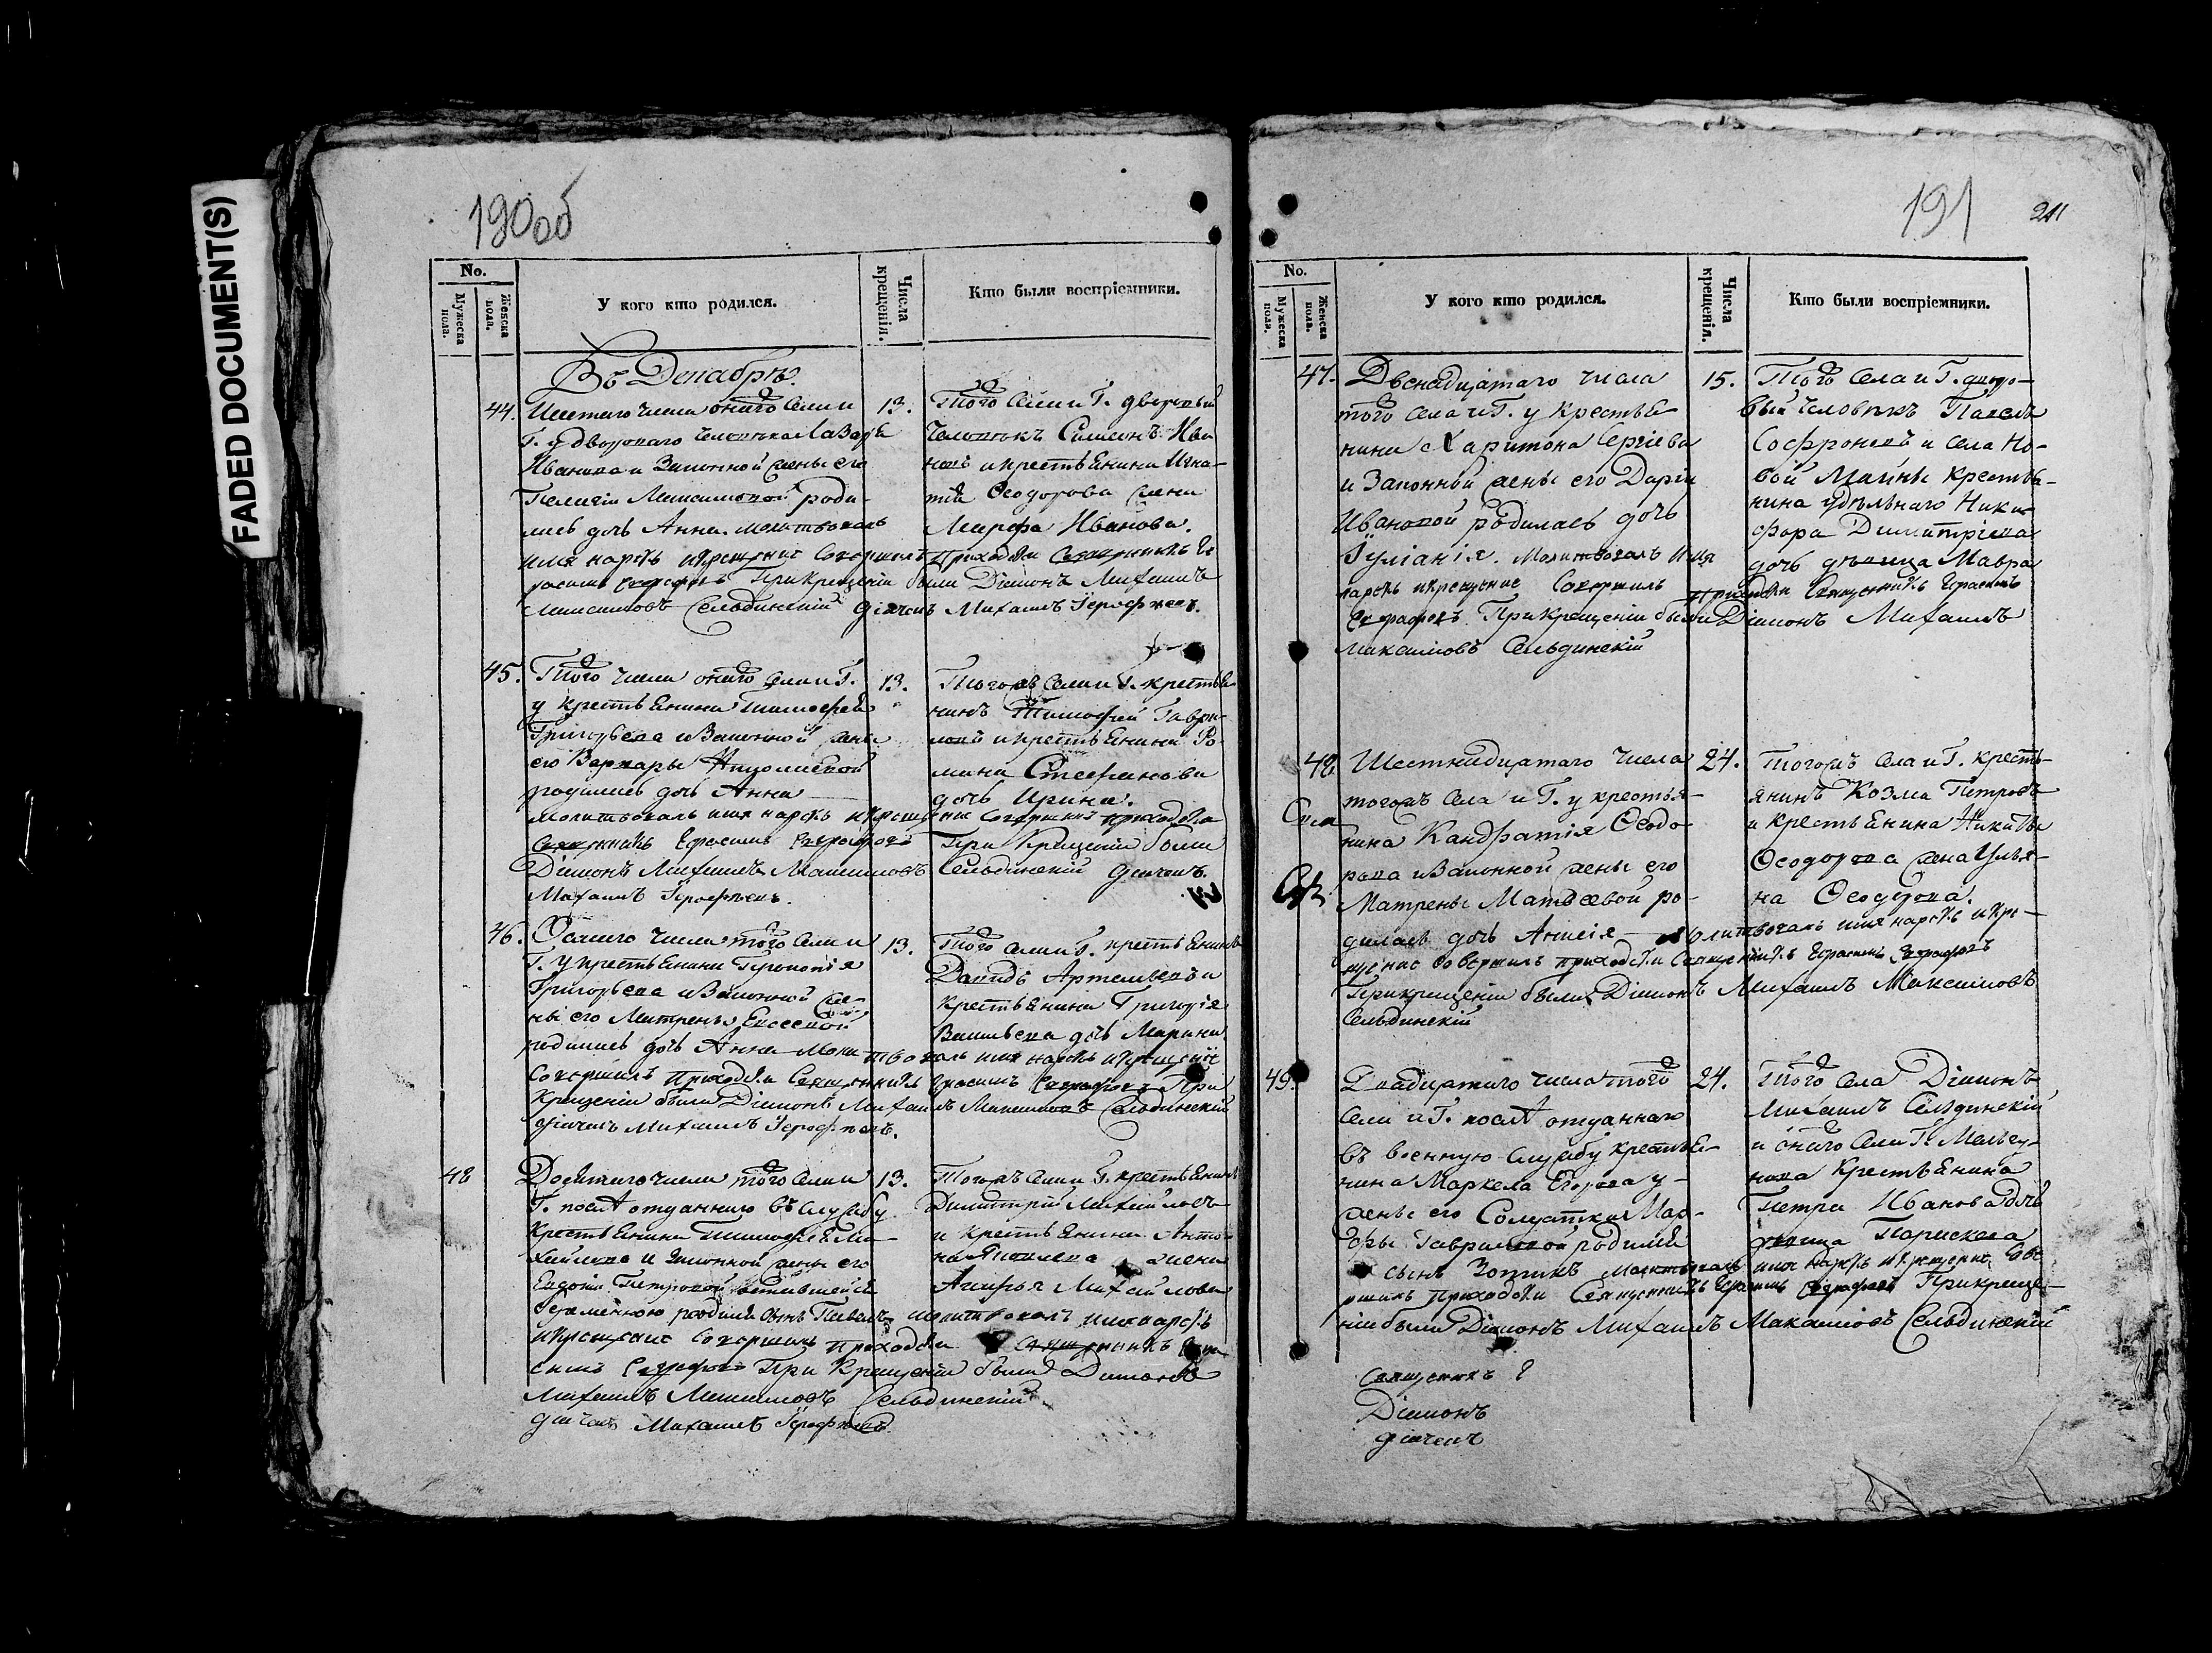 FADED DOCUMENT(S)
190об
No.
Мужеска пола.
Женска пола.
У кого кто родился.
Числа крещенія.
Кто были воспріемники.
Въ Декабрѣ.
44. Шестаго числа онаго села и
Г. у двороваго человѣка Лазаря
Иванова и законной жены его
Пелагіи Максимовой роди-
лась дочь Анна. молитвовалъ
имя нарекъ и крещение совершилъ приходскій священникъ Ге-
расимъ При крещеніи были Діаконъ Михаилъ
Максимовъ Сельдинскій дьячекъ Михаилъ Іерофѣевъ.
13. Того села и Г. дворовый
человѣкъ Симеонъ Ива-
новъ и крестьянина Игна-
тія Ѳеодорова жена
Марфа Иванова.
45. Того числа онаго села и Г.
у крестьянина Тимофея
Григорьева и законной жены
его Варвары
родилась дочь Анна
молитвовалъ имя нарекъ и крещение совершилъ приходскій
священникъ Герасимъ При крещеніи были
Діаконъ Михаилъ Максимовъ Сельдинскій дьячекъ
Михаилъ Іерофѣевъ.
13. Тогожъ села и Г. крестья-
нинъ Тимофей Гаври-
ловъ и крестьянина Ро-
мана Стефанова
дочь Ирина.
46. Осмаго числа того села и
Г. у крестьянина
Григорьева и законной же-
ны его Матрены
родилась дочь Анна молитвовалъ имя нарекъ и крещение
совершилъ приходскій священникъ Герасимъ При
крещеніи были Діаконъ Михаилъ Максимовъ Сельдинскій
дьячекъ Михаилъ Іерофѣевъ.
13. Того села и Г. крестьянинъ
Давидъ Артемьевъ и
крестьянина Григорія
Васильева дочь Марина.
48 Девятаго числа того села и
Г. послѣ отданнаго въ службу
крестьянина Тимофея Ми-
хайлова и законной жены его
Евдокіи Петровой оставшейся
беременною родился сынъ Павелъ молитвовалъ имя нарекъ
и крещение совершилъ приходскій священникъ Гера-
симъ При крещеніи были Діаконъ
Михаилъ Максимовъ Сельдинскій
дьячекъ Михаилъ Іерофѣевъ.
13. Тогожъ села и Г. крестьянинъ
Димитрій Михайловъ
и крестьянина Анто-
на Яковлева жена
Агафья Михайлова
191
211
No.
Мужеска пола.
Женска пола.
У кого кто родился.
Числа крещенія.
Кто были воспріемники.
47. Двенадцатаго числа
того села и Г. у крестья-
нина Харитона Сергіева
и законной жены его Дарьи
Ивановой родилась дочь
Іуліанія. Молитвовалъ имя
нарекъ и крещение совершилъ приходскій священникъ Герасимъ
При крещеніи были Діаконъ Михаилъ
Максимовъ Сельдинскій
15. Того села и Г. дворо-
вый человѣкъ Павелъ
Софроновъ и села Но-
вой Майны крестья-
нина удѣльнаго Ники-
фора Димитріева
дочь дѣвица Мавра
48 Шестнадцатаго числа
тогожъ села и Г. у крестья-
нина Кандратія Ѳеодо-
рова и законной жены его
Матрены Матвеевой ро-
дилась дочь Анисія молитвовалъ имя нарекъ и кре-
щение совершилъ приходскій священникъ Герасимъ
При крещеніи были Діаконъ Михаилъ Максимовъ
Сельдинскій
24. Тогожъ села и Г. кресть-
янинъ Козма Петровъ
и крестьянина Никиты
Ѳеодорова жена Улья-
на Ѳеодорова.
49. Двадцатаго числа того
села и Г. послѣ отданнаго
въ военную службу крестья-
нина Маркела Егорова у
жены его солдатки Мар-
фы Гавриловой родился
сынъ Зотикъ молитвовалъ имя нарекъ и крещение сове-
ршилъ приходскій священникъ Герасимъ При креще-
ніи были Діаконъ Михаилъ Максимовъ Сельдинскій
24. Того села Діаконъ
Михаилъ Сельдинскій
и онаго села Г.
крестьянина
Петра Иванова дочь
дѣвица Параскева
Священникъ
Діаконъ
дьячекъ